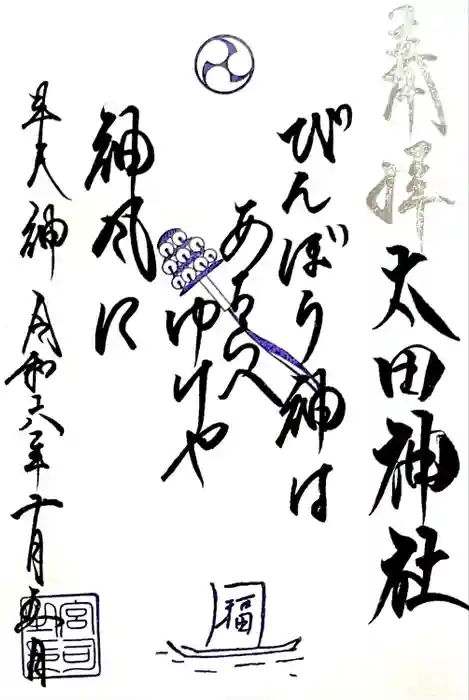 奉拝
太田神社
びんぼう神は
あちらへ
ゆけや
神風に
牛天神 令和六年十月五日
福